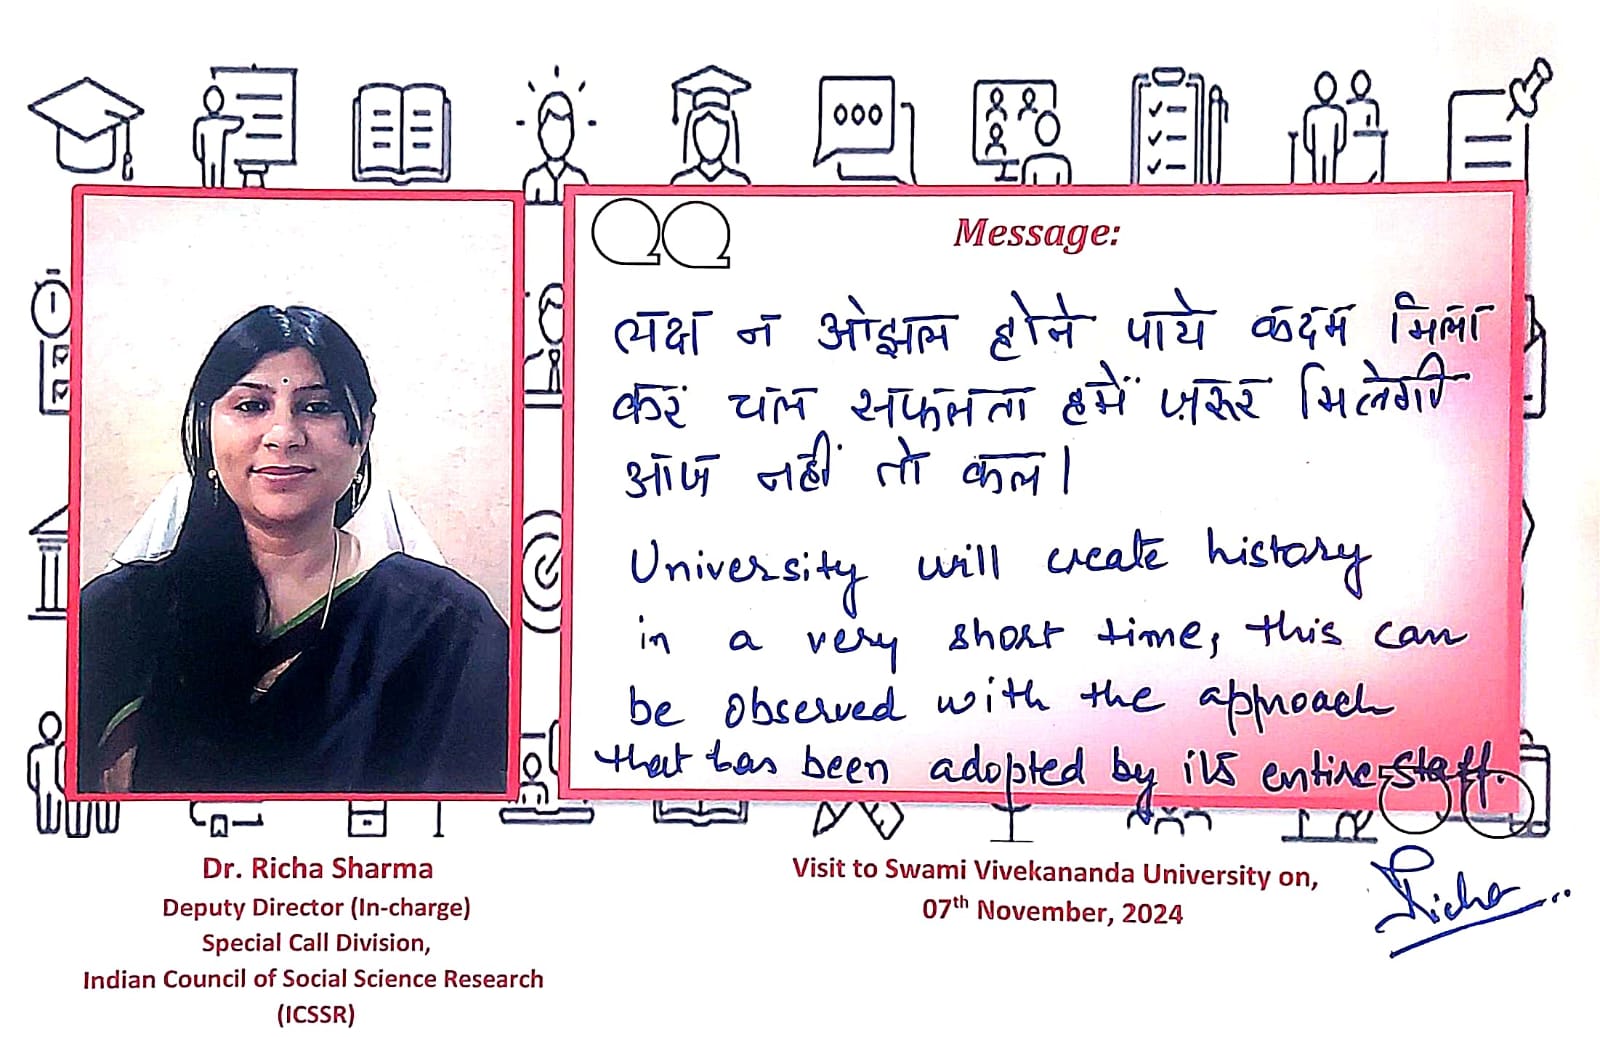 Message:
लक्ष न ओझल होने पाये कदम मिला
करं चल सफलता हमें ज़रूर मिलेगी
आज नहीं तो कल।
University will create history
in a very short time, this can
be observed with the approach
that has been adopted by its entire staff.
Richa
Dr. Richa Sharma
Deputy Director (In-charge)
Special Call Division,
Indian Council of Social Science Research
(ICSSR)
Visit to Swami Vivekananda University on,
07th November, 2024